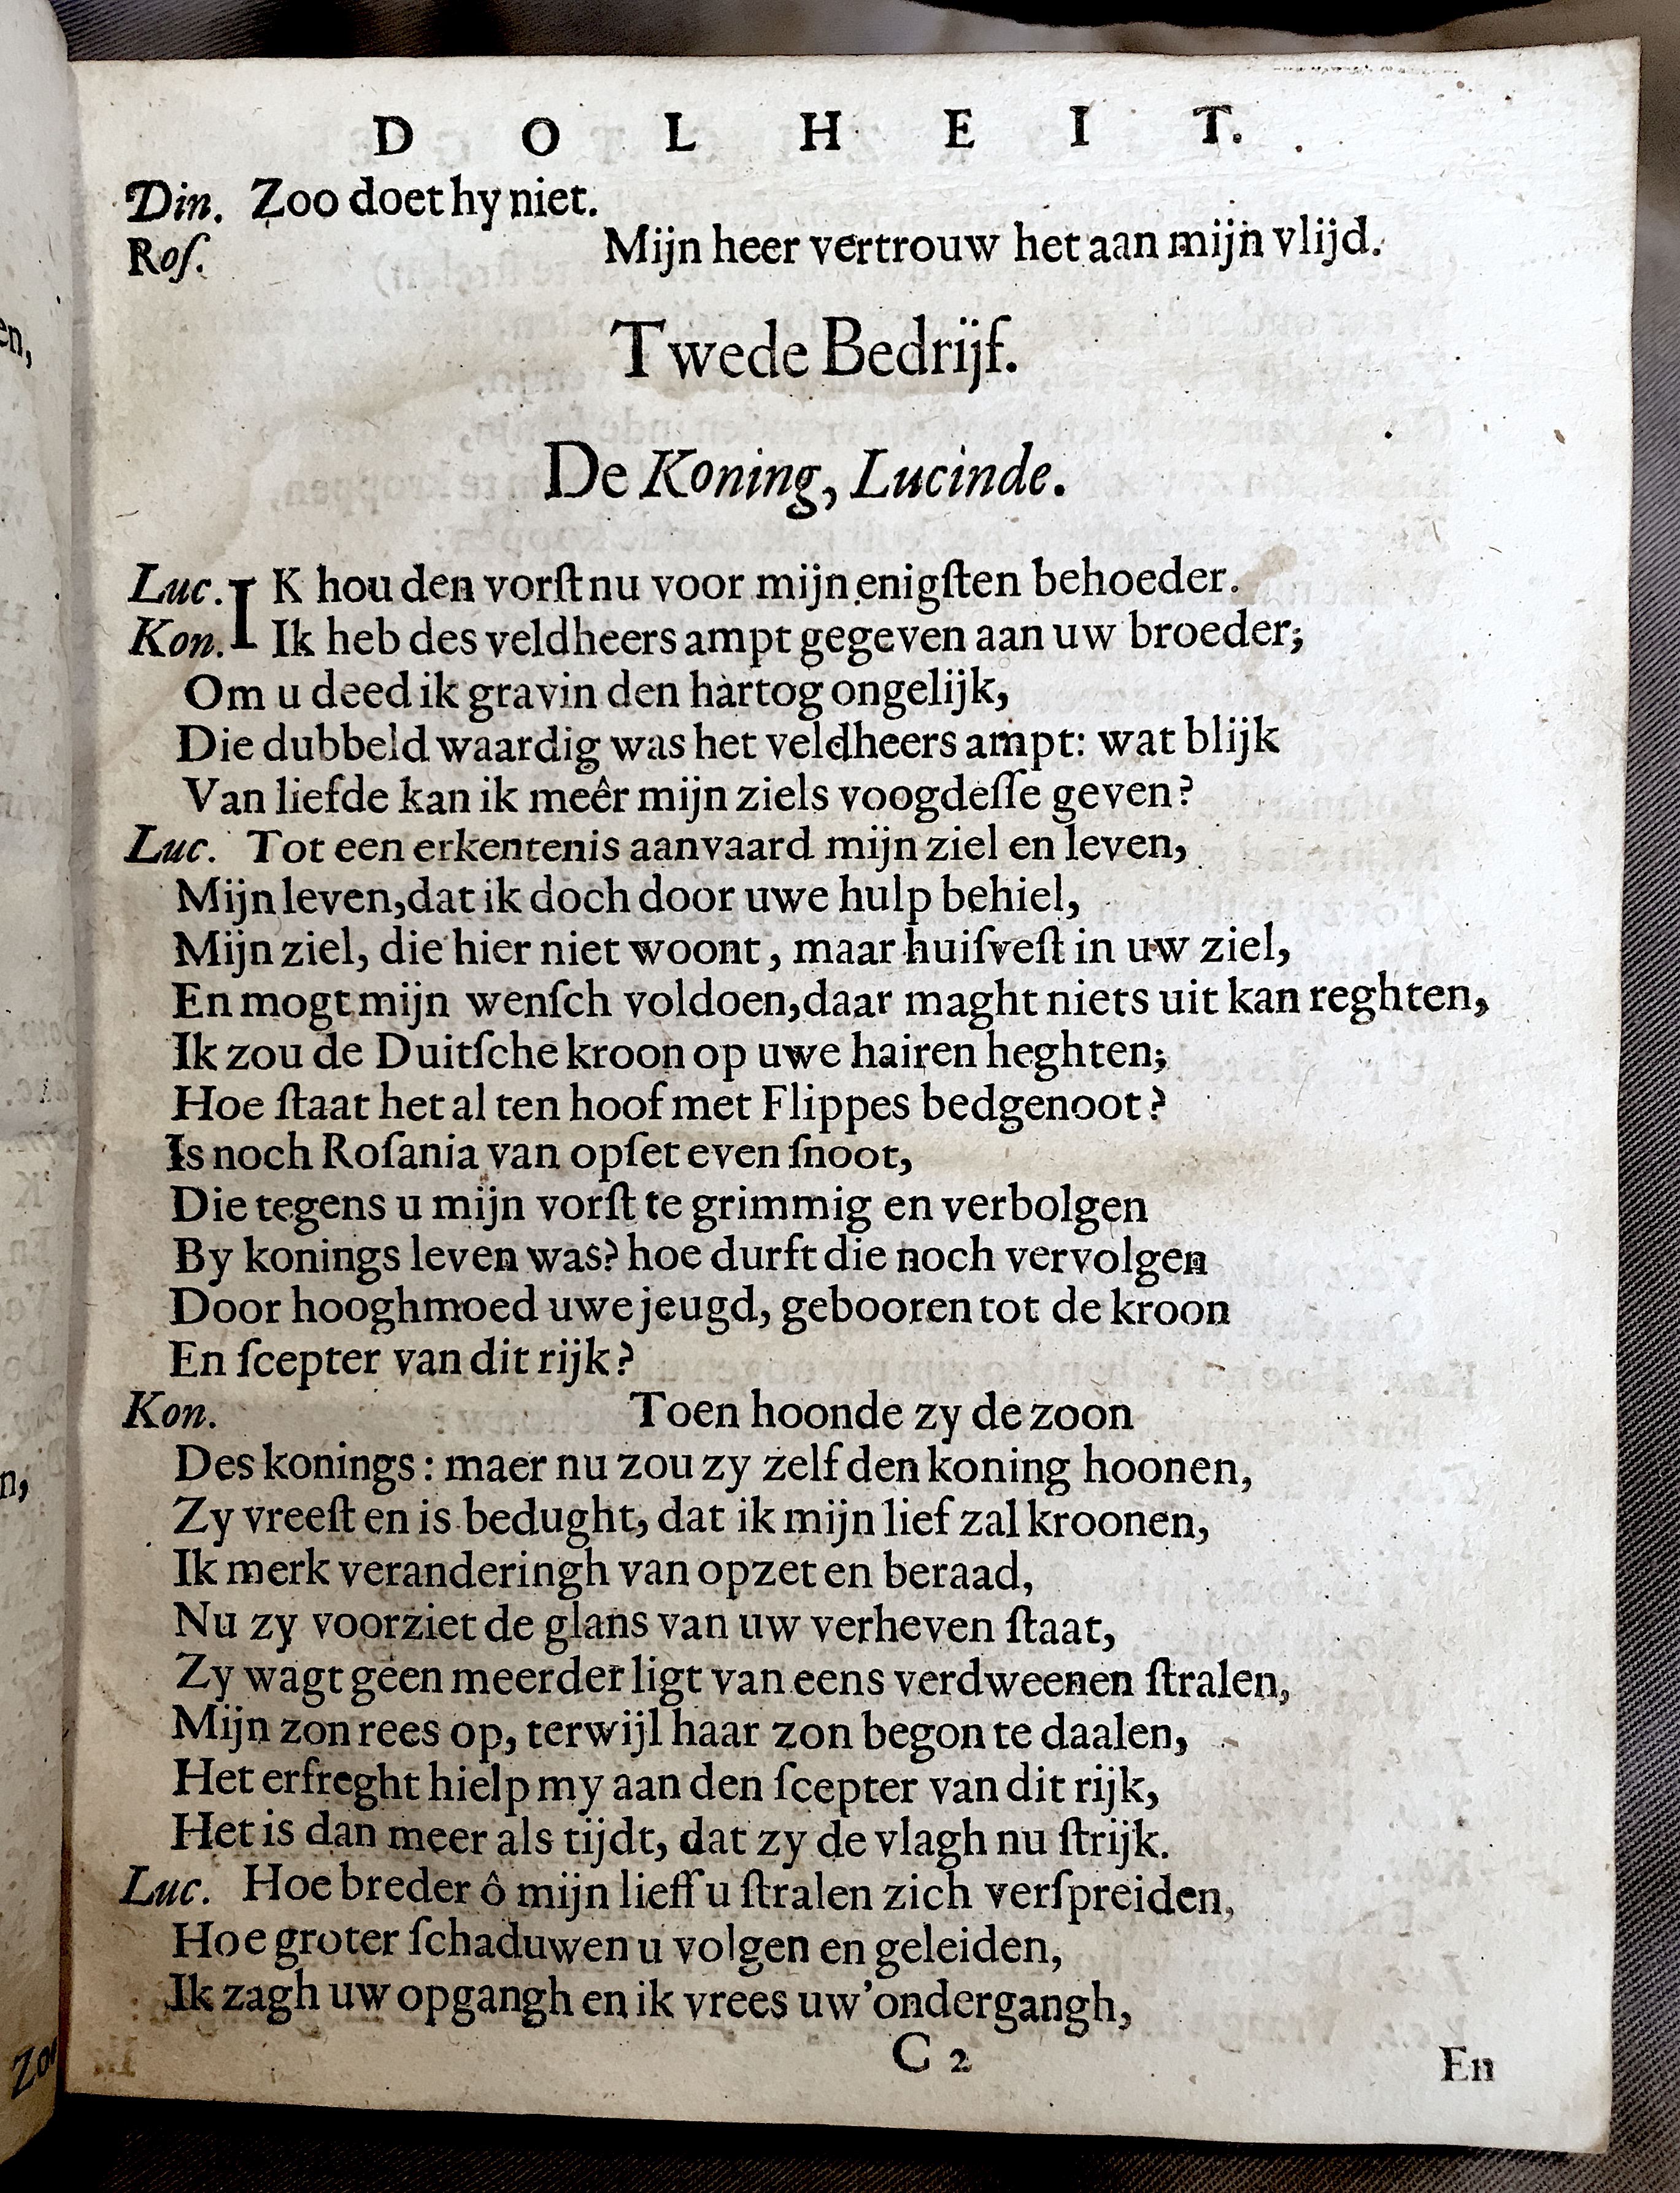 D O L H E I T.
Din. Zoo doet hy niet.
Roſ. Mijn heer vertrouw het aan mijn vlijd.
Twede Bedrijf.
De Koning, Lucinde.
Luc. IK hou den vorſt nu voor mijn enigſten behoeder.
Kon. Ik heb des veldheers ampt gegeven aan uw broeder;
Om u deed ik gravin den hartog ongelijk,
Die dubbeld waardig was het veldheers ampt: wat blijk
Van liefde kan ik meêr mijn ziels voogdeſſe geven?
Luc. Tot een erkentenis aanvaard mijn ziel en leven,
Mijn leven, dat ik doch door uwe hulp behiel,
Mijn ziel, die hier niet woont, maar huiſveſt in uw ziel,
En mogt mijn wenſch voldoen, daar maght niets uit kan reghten,
Ik zou de Duitſche kroon op uwe hairen heghten;
Hoe ſtaat het al ten hoof met Flippes bedgenoot?
Is noch Roſania van opſet even ſnoot,
Die tegens u mijn vorſt te grimmig en verbolgen
By konings leven was? hoe durft die noch vervolgen
Door hooghmoed uwe jeugd, gebooren tot de kroon
En ſcepter van dit rijk?
Kon. Toen hoonde zy de zoon
Des konings: maer nu zou zy zelf den koning hoonen,
Zy vreeſt en is bedught, dat ik mijn lief zal kroonen,
Ik merk veranderingh van opzet en beraad,
Nu zy voorziet de glans van uw verheven ſtaat,
Zy wagt geen meerder ligt van eens verdweenen ſtralen,
Mijn zon rees op, terwijl haar zon begon te daalen,
Het erfreght hielp my aan den ſcepter van dit rijk,
Het is dan meer als tijdt, dat zy de vlagh nu ſtrijk.
Luc. Hoe breder ô mijn lieff u ſtralen zich verſpreiden,
Hoe groter ſchaduwen u volgen en geleiden,
Ik zagh uw opgangh en ik vrees uw'ondergangh,
C 2 En
en,
n,